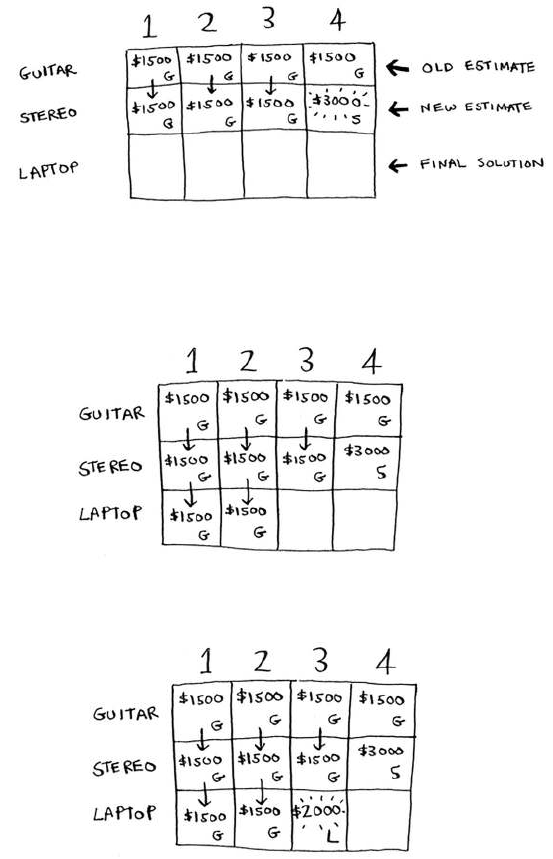 1 2 3 4
GUITAR $1500 G $1500 G $1500 G $1500 G ← OLD ESTIMATE
STEREO $1500 G $1500 G $1500 G $3000 S ← NEW ESTIMATE
LAPTOP ← FINAL SOLUTION
1 2 3 4
GUITAR $1500 G $1500 G $1500 G $1500 G
STEREO $1500 G $1500 G $1500 G $3000 S
LAPTOP $1500 G $1500 G
1 2 3 4
GUITAR $1500 G $1500 G $1500 G $1500 G
STEREO $1500 G $1500 G $1500 G $3000 S
LAPTOP $1500 G $1500 G $2000 L